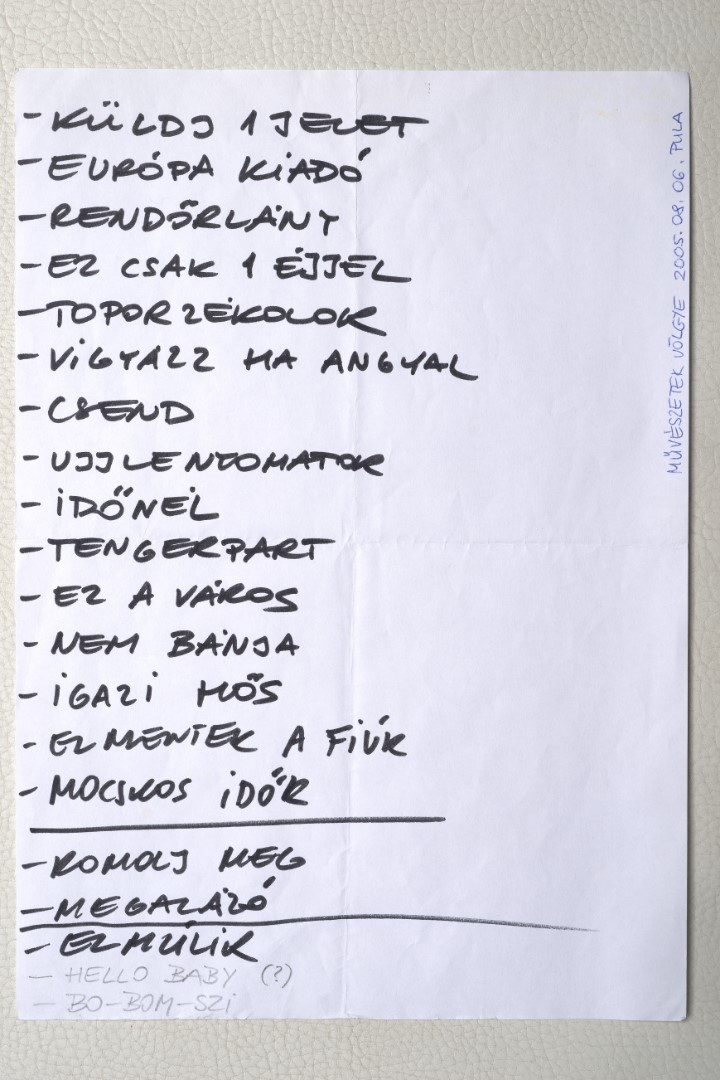 - KÜLDJ 1 JELET
- EURÓPA KIADÓ
- RENDŐRLÁNY
- EZ CSAK 1 ÉJJEL
- TOPORZÉKOLOK
- VIGYÁZZ HA ANGYAL
- CSEND
- UJJLENYOMATOK
- IDŐNÉL
- TENGERPART
- EZ A VÁROS
- NEM BÁNJA
- IGAZI HŐS
- ELMENTEK A FIÚK
- MOCSKOS IDŐK
- ROMOLJ MEG
- MEGALÁZÓ
- ELMÚLIK
- HELLO BABY (?)
- BO-BOM-SZI
MŰVÉSZETEK VÖLGYE 2005. 08. 06. PULA